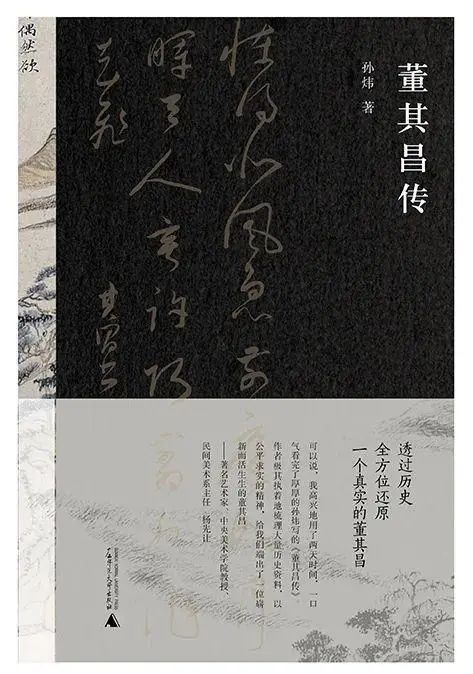 董其昌传
孙炜 著
怪得北風急前
暉天人寧許巧剪水
花飛
其昌
偶然欲
透过历史
全方位还原
一个真实的董其昌
可以说，我高兴地用了两天时间，一口
气看完了厚厚的孙炜写的《董其昌传》。
作者极其执着地梳理大量历史资料，以
公平求实的精神，给我们端出了一位崭
新而活生生的董其昌
——著名艺术家、中央美术学院教授、
民间美术系主任 杨先让
广西师范大学出版社